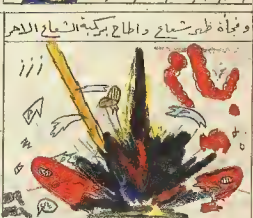 وفجأة ظهر شعاع واطاح بمركبة الشعاع الاحمر
ززز